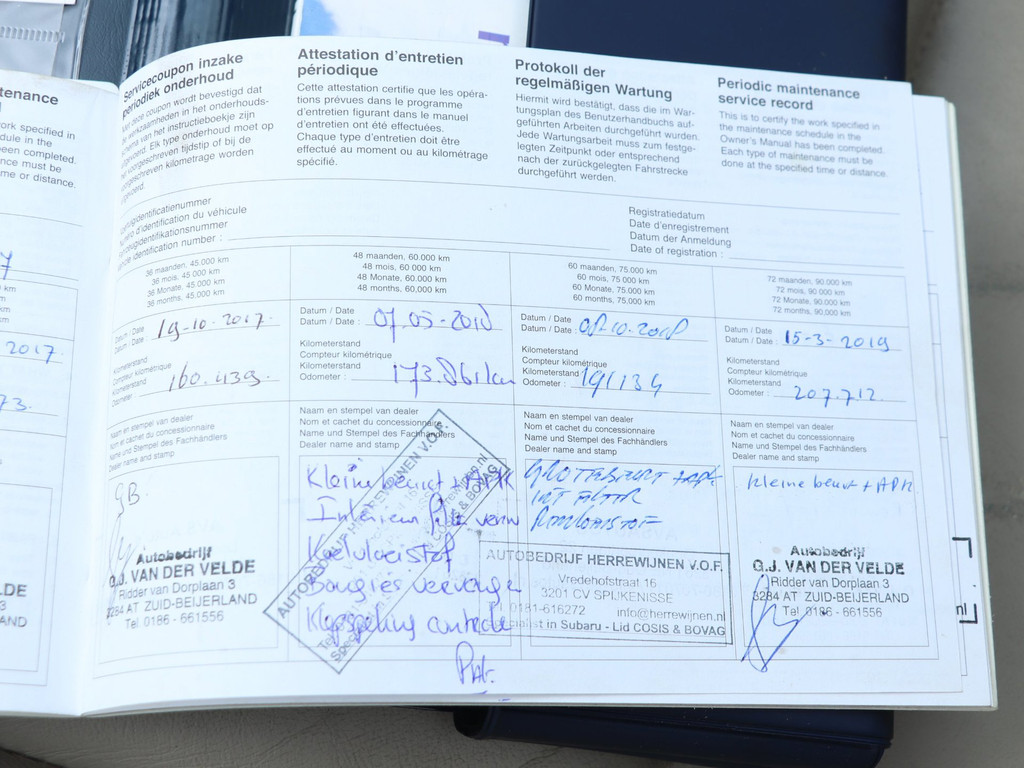 tenance
ork specified in
dule in the
been completed.
nce must be
me or distance.
2017
73.
Servicecoupon inzake
periodiek onderhoud
Met deze coupon wordt bevestigd dat
de werkzaamheden in het onderhouds-
schema van het instructieboekje zijn
uitgevoerd. Elk type onderhoud moet op
het voorgeschreven tijdstip of bij de
voorgeschreven kilometrage worden
uitgevoerd.
Attestation d'entretien
périodique
Cette attestation certifie que les opéra-
tions prévues dans le programme
d'entretien figurant dans le manuel
d'entretien ont été effectuées.
Chaque type d'entretien doit être
effectué au moment ou au kilométrage
spécifié.
Protokoll der
regelmäßigen Wartung
Hiermit wird bestätigt, dass die im War-
tungsplan des Benutzerhandbuchs auf-
geführten Arbeiten durchgeführt wurden.
Jede Wartungsarbeit muss zum festge-
legten Zeitpunkt oder entsprechend
nach der zurückgelegten Fahrstrecke
durchgeführt werden.
Periodic maintenance
service record
This is to certify the work specified in
the maintenance schedule in the
Owner's Manual has been completed.
Each type of maintenance must be
done at the specified time or distance.
Voertuigidentificatienummer
Numéro d'identification du véhicule
Fahrzeugidentifikationsnummer
Vehicle identification number :
Registratiedatum
Date d'enregistrement
Datum der Anmeldung
Date of registration :
36 maanden, 45.000 km
36 mois, 45 000 km
36 Monate, 45.000 km
36 months, 45.000 km
Datum / Date
Datum / Date : 19-10-2017.
Kilometerstand
Compteur kilométrique
Kilometerstand
Odometer : 160.439.
Naam en stempel van dealer
Nom et cachet du concessionnaire
Name und Stempel des Fachhändlers
Dealer name and stamp
GB.
Autobedrijf
G.J. VAN DER VELDE
Ridder van Dorplaan 3
3284 AT ZUID-BEIJERLAND
Tel 0186 - 661556
48 maanden, 60.000 km
48 mois, 60 000 km
48 Monate, 60.000 km
48 months, 60.000 km
Datum / Date
Datum / Date : 07-05-2018
Kilometerstand
Compteur kilométrique
Kilometerstand
Odometer : 173.861km
Naam en stempel van dealer
Nom et cachet du concessionnaire
Name und Stempel des Fachhändlers
Dealer name and stamp
Kleine beurt + APK
Interieur filter verv
Koelvloeistof
Bougies vervangen
Klepspeling controle
60 maanden, 75.000 km
60 mois, 75 000 km
60 Monate, 75.000 km
60 months, 75.000 km
Datum / Date
Datum / Date : 08-10-2018
Kilometerstand
Compteur kilométrique
Kilometerstand
Odometer : 191134
Naam en stempel van dealer
Nom et cachet du concessionnaire
Name und Stempel des Fachhändlers
Dealer name and stamp
GROTEBEURT + APK
INT FILTER
Remvloeistof
AUTOBEDRIJF HERREWIJNEN V.O.F.
Vredehofstraat 16
3201 CV SPIJKENISSE
0181-616272 info@herrewijnen.nl
Specialist in Subaru - Lid COSIS & BOVAG
72 maanden, 90.000 km
72 mois, 90 000 km
72 Monate, 90.000 km
72 months, 90.000 km
Datum / Date
Datum / Date : 15-3-2019
Kilometerstand
Compteur kilométrique
Kilometerstand
Odometer : 207.712.
Naam en stempel van dealer
Nom et cachet du concessionnaire
Name und Stempel des Fachhändlers
Dealer name and stamp
Kleine beurt + APK
Autobedrijf
G.J. VAN DER VELDE
Ridder van Dorplaan 3
3284 AT ZUID-BEIJERLAND
Tel 0186 - 661556